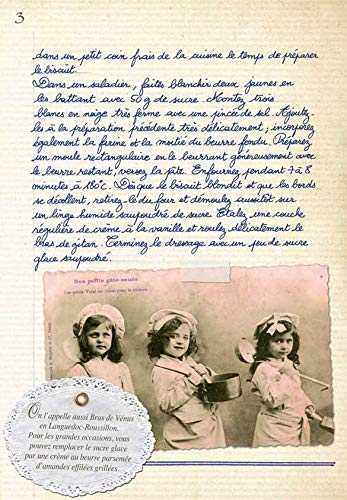 3
dans un petit coin frais de la cuisine le temps de préparer
le biscuit.
Dans un saladier, faites blanchir deux jaunes en
les battant avec 50 g de sucre. Montez trois
blancs en neige très ferme avec une pincée de sel. Ajoutez-
les à la préparation précédente très délicatement, incorporez
également la farine et la moitié du beurre fondu. Préparez
un moule rectangulaire en le beurrant généreusement avec
le beurre restant, versez la pâte. Enfournez pendant 7 à 8
minutes à 180°C. Dès que le biscuit blondit et que les bords
se décollent, retirez-le du four et démoulez aussitôt sur
un linge humide saupoudré de sucre. Etalez une couche
régulière de crème à la vanille et roulez délicatement le
bras de gitan. Terminez le dressage avec un peu de sucre
glace saupoudré.
Nos petits gâte-sauce
On l'appelle aussi Bras de Vénus
en Languedoc-Roussillon.
Pour les grandes occasions, vous
pouvez remplacer le sucre glace
par une crème au beurre parsemée
d'amandes effilées grillées.